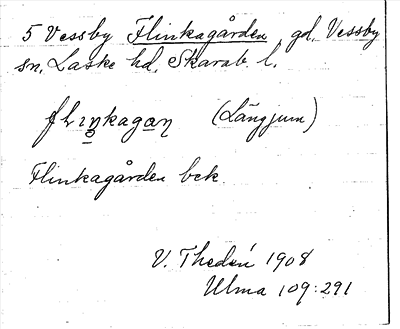 5 Vessby Flinkagården, gd, Vessby
sn, Laske hd, Skarab. l.
flinkagan (Längjum)
Flinkagården bek.
V. Thedén 1908
Ulma 109:291